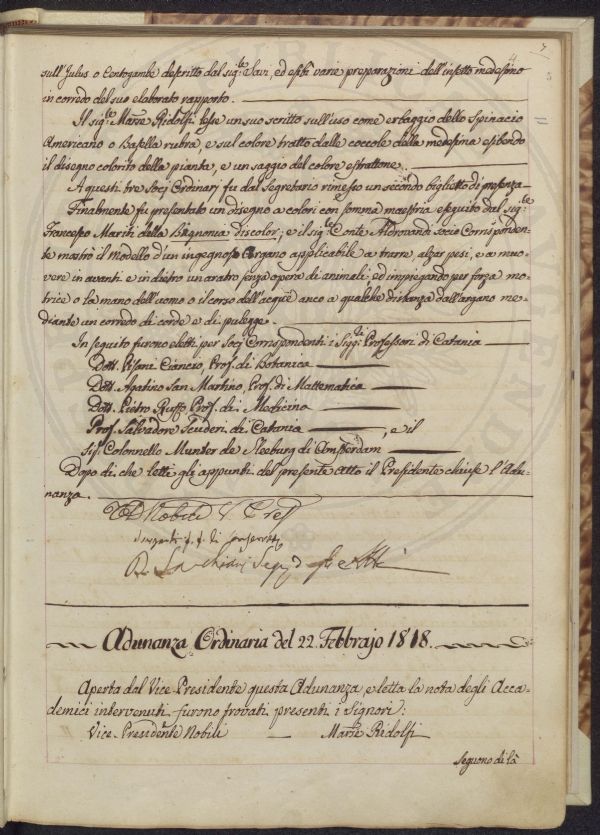 sull'Julus o Centogambe descritto dal sig.le Savi, ed esibì varie preparazioni dell'insetto medesimo
in corredo del suo elaborato rapporto.
Il sig.le March.se Ridolfi lesse un suo scritto sull'uso come erbaggio dello Spinacio
Americano o Basella rubra, e sul colore tratto dalle coccole della medesima esibendo
il disegno colorito della pianta, e un saggio del colore estrattone.
A questi tre Socj Ordinarj fu dal Segretario rimesso un secondo biglietto di presenza
Finalmente fu presentato un disegno a colori con somma maestria eseguito dal sig.le
Francesco Mariti della Bignonia discolor; e il sig.le Conte Aldrovandi socio Corrisponden-
te mostrò il modello d'un ingegnoso Argano applicabile a trarre, alzar pesi, e a muo-
vere in avanti e in dietro un aratro senza opera di animali, ed impiegando per forza mo-
trice o la mano dell'uomo o il corso dell'acque anco a qualche distanza dall'argano me-
diante un corredo di corde e di pulegge.
In seguito furono eletti per Socj Corrispondenti i Sigg.ri Professori di Catania
Dott. Pisani Ciancio, Prof. di Botanica
Dott. Agatino San Martino, Prof. di Mattematica
Dott. Pietro Ruffo Prof. di Medicina
Prof. Salvadore Scuderi di Catania, e il
Sig. Colonnello Munter de Meeburg di Amsterdam
Dopo di che letti gli appunti del presente Atto il Presidente chiuse l'Adu-
nanza.
Nobili V. Pres.
Segr. degli Atti
Adunanza Ordinaria del 22. Febbrajo 1818.
Aperta dal Vice Presidente questa Adunanza, e letta la nota degli Acca-
demici intervenuti furono trovati presenti i Signori:
Vice Presidente Nobili — March.se Ridolfi
seguono di là